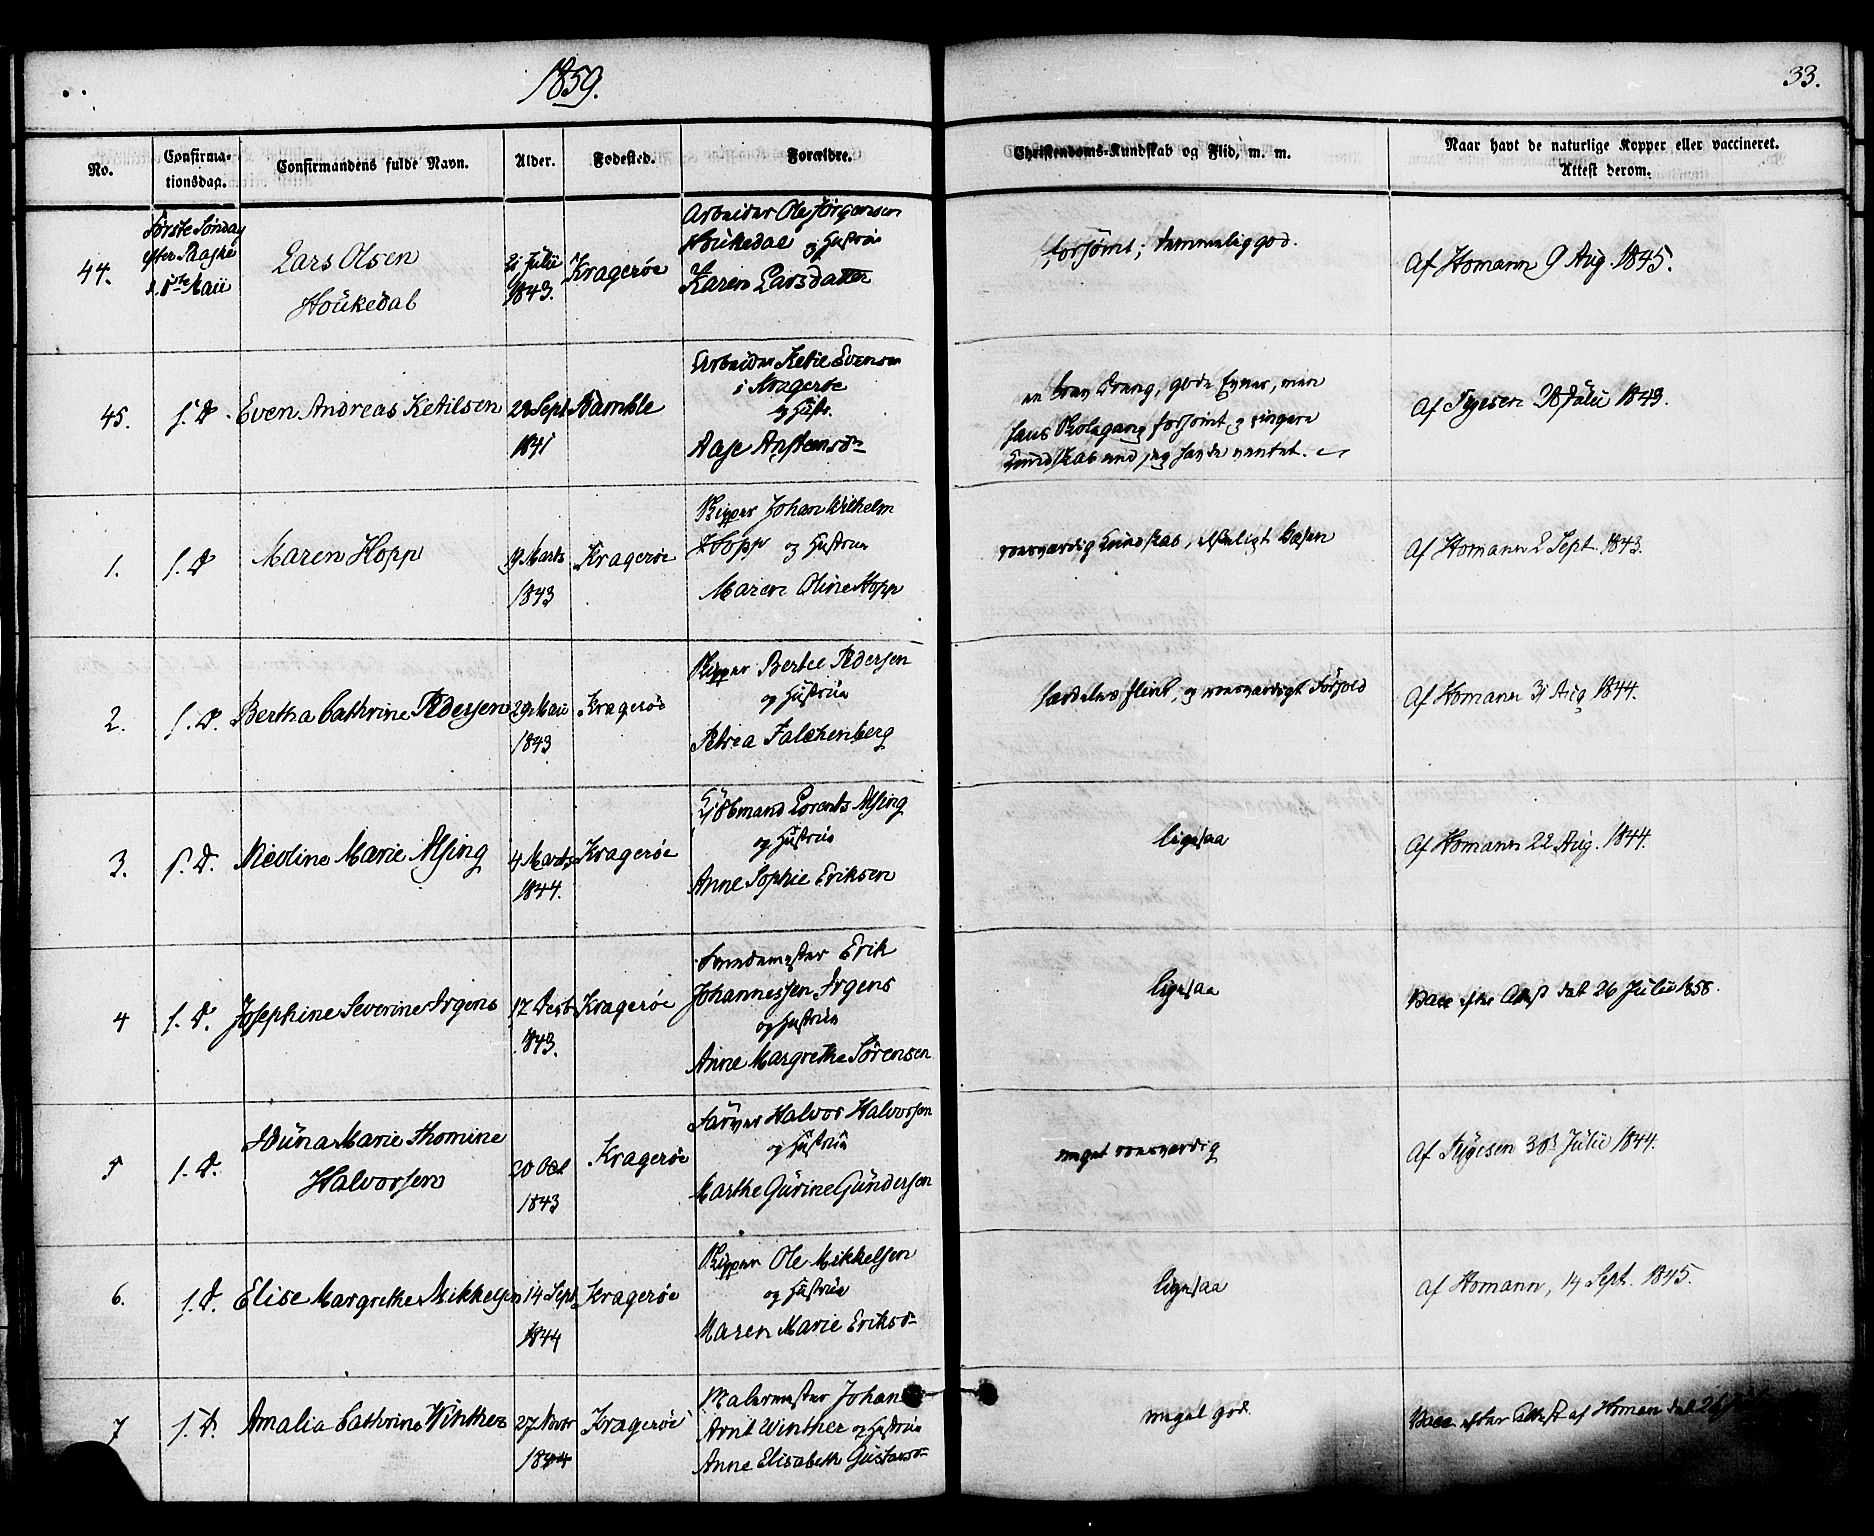 1859.
33.
No.
Confirma-
tionsdag.
Confirmandens fulde Navn.
Alder.
Fodested.
Forældre.
Christendoms-Kundskab og Flid, m. m.
Naar havt de naturlige Kopper eller vaccineret.
Attest derom.
44.
Første Søndag
efter Paaske
Maii
Lars Olsen
Houkedal
Julii
1843.
Kragerøe
Arbeider Ole Jørgensen
Houkedal og Hustrue
Karen Larsdatter
forsømt; temmelig god.
Af Homann 9 Aug. 1845.
45.
s. D.
Even Andreas Ketilsen
28 Sept
1841
Bamble
Arbeider Ketil Evensen
i Kragerøe
og Hustr.
Aase
en brav Dreng, gode Evner, men
hans Skolegang forsømt og ringere
Kundskab end jeg havde ventet.
Af Tygesen 28 Julii 1843.
1.
s. D
Maren Hopp
9 Marts
1843
Kragerøe
Skipper Johan Wilhelm
Hopp og Hustrue
Maren Oline Hopp
roesværdig Kundskab,
Af Homann 2 Sept. 1843.
2.
s. D.
Bertha Cathrine Pedersen
29 Maii
1843
Kragerøe
Skipper Bertel Pedersen
og Hustrue
Petrea Falchenberg
særdeles flink, og roesværdigt Forhold
Af Homann 31 Aug 1844.
3.
s. D.
Nicoline Marie Alsing
4 Marts
1844.
Kragerøe
Kjøbmand Lorents Alsing
og Hustrue
Anne Sophie Eriksen
ligesaa
Af Homann 22 Aug. 1844.
4
s. D.
Josephine Severine Irgens
17 Decb
1843.
Kragerøe
Erik
Johannessen Irgens
og Hustrue
Anne Margrethe Sørensen
ligesaa
Vacc efter Attest dat 26 Julii 1858.
5
s. D.
Iduna Marie Thomine
Halvorsen
20 Oct
1843
Kragerøe
Farver Halvor Halvorsen
og Hustrue
Marthe Gurine Gundersen
meget roesværdig
Af Tygesen Julii 1844.
6.
s. D.
Elise Margrethe Mikkelsen
14 Sept
1844
Kragerøe
Skipper Ole Mikkelsen
og Hustrue
Maren Marie Eriksd
ligesaa
Af Homann, 14 Sept. 1845.
7
s. D.
Amalia Cathrine Winther
27 Novbr
1844
Kragerøe
Malermester Johan
Arnt Winther og Hustrue
Anne Elisabeth Gustavsd
meget god.
Vacc efter Attest af Homan dat 26